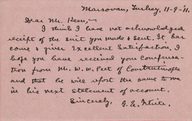 Marsovan, Turkey, 11-9-11.
Dear Mr. Kerr,—
I think I have not acknowledged
receipt of the suit you made & sent. It has
come & gives excellent satisfaction. I
hope you have received your compensa-
tion from Mr. W. W. Peet of Constantinople
and that he will report the same to me
in his next statement of account.
Sincerely, G. E. White.